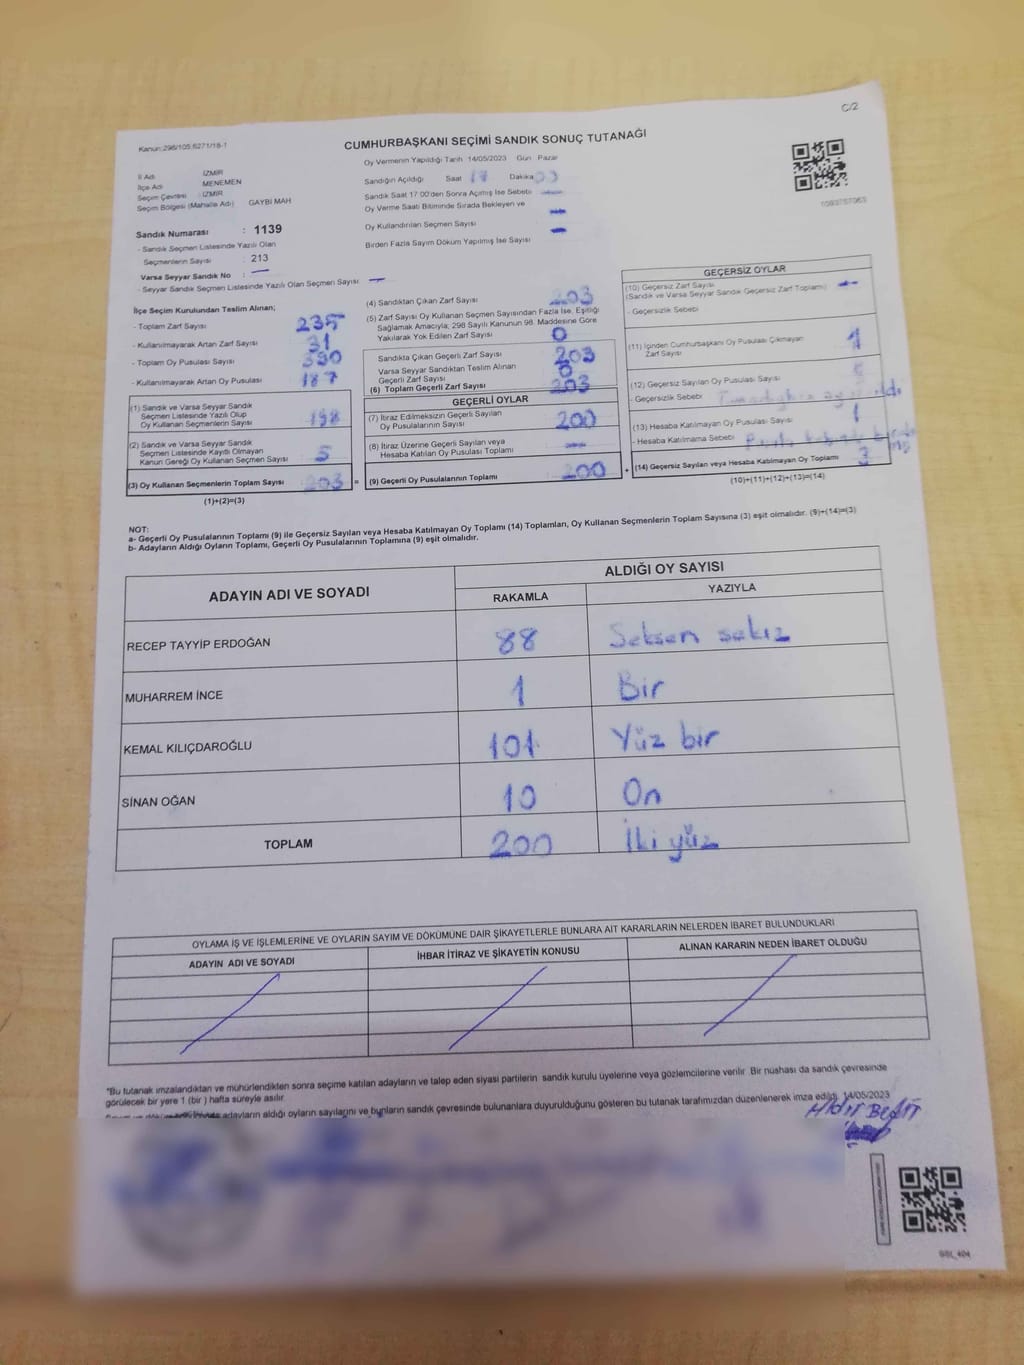 C/2
Kanun:298/105;6271/18-1
CUMHURBAŞKANI SEÇİMİ SANDIK SONUÇ TUTANAĞI
İl Adı İZMİR
İlçe Adı MENEMEN
Seçim Çevresi : İZMİR
Seçim Bölgesi (Mahalle Adı) GAYBİ MAH
Sandık Numarası : 1139
- Sandık Seçmen Listesinde Yazılı Olan
Seçmenlerin Sayısı : 213
Varsa Seyyar Sandık No : —
- Seyyar Sandık Seçmen Listesinde Yazılı Olan Seçmen Sayısı —
Oy Vermenin Yapıldığı Tarih 14/05/2023 Gün Pazar
Sandığın Açıldığı Saat 17 Dakika
Sandık Saat 17:00'den Sonra Açılmış İse Sebebi —
Oy Verme Saati Bitiminde Sırada Bekleyen ve
Oy Kullandırılan Seçmen Sayısı —
Birden Fazla Sayım Döküm Yapılmış İse Sayısı —
1093757063
İlçe Seçim Kurulundan Teslim Alınan;
- Toplam Zarf Sayısı 235
- Kullanılmayarak Artan Zarf Sayısı 31
- Toplam Oy Pusulası Sayısı 390
- Kullanılmayarak Artan Oy Pusulası 187
(1) Sandık ve Varsa Seyyar Sandık
Seçmen Listesinde Yazılı Olup
Oy Kullanan Seçmenlerin Sayısı 198
(2) Sandık ve Varsa Seyyar Sandık
Seçmen Listesinde Kayıtlı Olmayan
Kanun Gereği Oy Kullanan Seçmen Sayısı 5
(3) Oy Kullanan Seçmenlerin Toplam Sayısı 203 =
(1)+(2)=(3)
(4) Sandıktan Çıkan Zarf Sayısı 203
(5) Zarf Sayısı Oy Kullanan Seçmen Sayısından Fazla İse, Eşitliği
Sağlamak Amacıyla; 298 Sayılı Kanunun 98. Maddesine Göre
Yakılarak Yok Edilen Zarf Sayısı 0
Sandıkta Çıkan Geçerli Zarf Sayısı 203
Varsa Seyyar Sandıktan Teslim Alınan
Geçerli Zarf Sayısı 0
(6) Toplam Geçerli Zarf Sayısı 203
GEÇERLİ OYLAR
(7) İtiraz Edilmeksizin Geçerli Sayılan
Oy Pusulalarının Sayısı 200
(8) İtiraz Üzerine Geçerli Sayılan veya
Hesaba Katılan Oy Pusulası Toplamı —
(9) Geçerli Oy Pusulalarının Toplamı 200 +
GEÇERSİZ OYLAR
(10) Geçersiz Zarf Sayısı —
(Sandık ve Varsa Seyyar Sandık Geçersiz Zarf Toplamı)
- Geçersizlik Sebebi
(11) İçinden Cumhurbaşkanı Oy Pusulası Çıkmayan
Zarf Sayısı 1
(12) Geçersiz Sayılan Oy Pusulası Sayısı
- Geçersizlik Sebebi
(13) Hesaba Katılmayan Oy Pusulası Sayısı 1
- Hesaba Katılmama Sebebi
(14) Geçersiz Sayılan veya Hesaba Katılmayan Oy Toplamı 3
(10)+(11)+(12)+(13)=(14)
NOT:
a- Geçerli Oy Pusulalarının Toplamı (9) ile Geçersiz Sayılan veya Hesaba Katılmayan Oy Toplamı (14) Toplamları, Oy Kullanan Seçmenlerin Toplam Sayısına (3) eşit olmalıdır. (9)+(14)=(3)
b- Adayların Aldığı Oyların Toplamı, Geçerli Oy Pusulalarının Toplamına (9) eşit olmalıdır.
ADAYIN ADI VE SOYADI ALDIĞI OY SAYISI
RAKAMLA YAZIYLA
RECEP TAYYİP ERDOĞAN 88 Seksen sekiz
MUHARREM İNCE 1 Bir
KEMAL KILIÇDAROĞLU 101 Yüz bir
SİNAN OĞAN 10 On
TOPLAM 200 İki yüz
OYLAMA İŞ VE İŞLEMLERİNE VE OYLARIN SAYIM VE DÖKÜMÜNE DAİR ŞİKAYETLERLE BUNLARA AİT KARARLARIN NELERDEN İBARET BULUNDUKLARI
ADAYIN ADI VE SOYADI İHBAR İTİRAZ VE ŞİKAYETİN KONUSU ALINAN KARARIN NEDEN İBARET OLDUĞU
*Bu tutanak imzalandıktan ve mühürlendikten sonra seçime katılan adayların ve talep eden siyasi partilerin sandık kurulu üyelerine veya gözlemcilerine verilir. Bir nüshası da sandık çevresinde
görülecek bir yere 1 (bir ) hafta süreyle asılır.
adayların aldığı oyların sayılarını ve bunların sandık çevresinde bulunanlara duyurulduğunu gösteren bu tutanak tarafımızdan düzenlenerek imza edildi. 14/05/2023